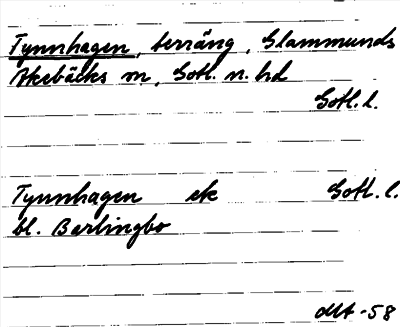 Tynnhagen, terräng, Glammunds
Akebäcks sn, Gotl. n. hd
Gotl. l.
Tynnhagen ek Gotl. l.
bl. Barlingbo
-58